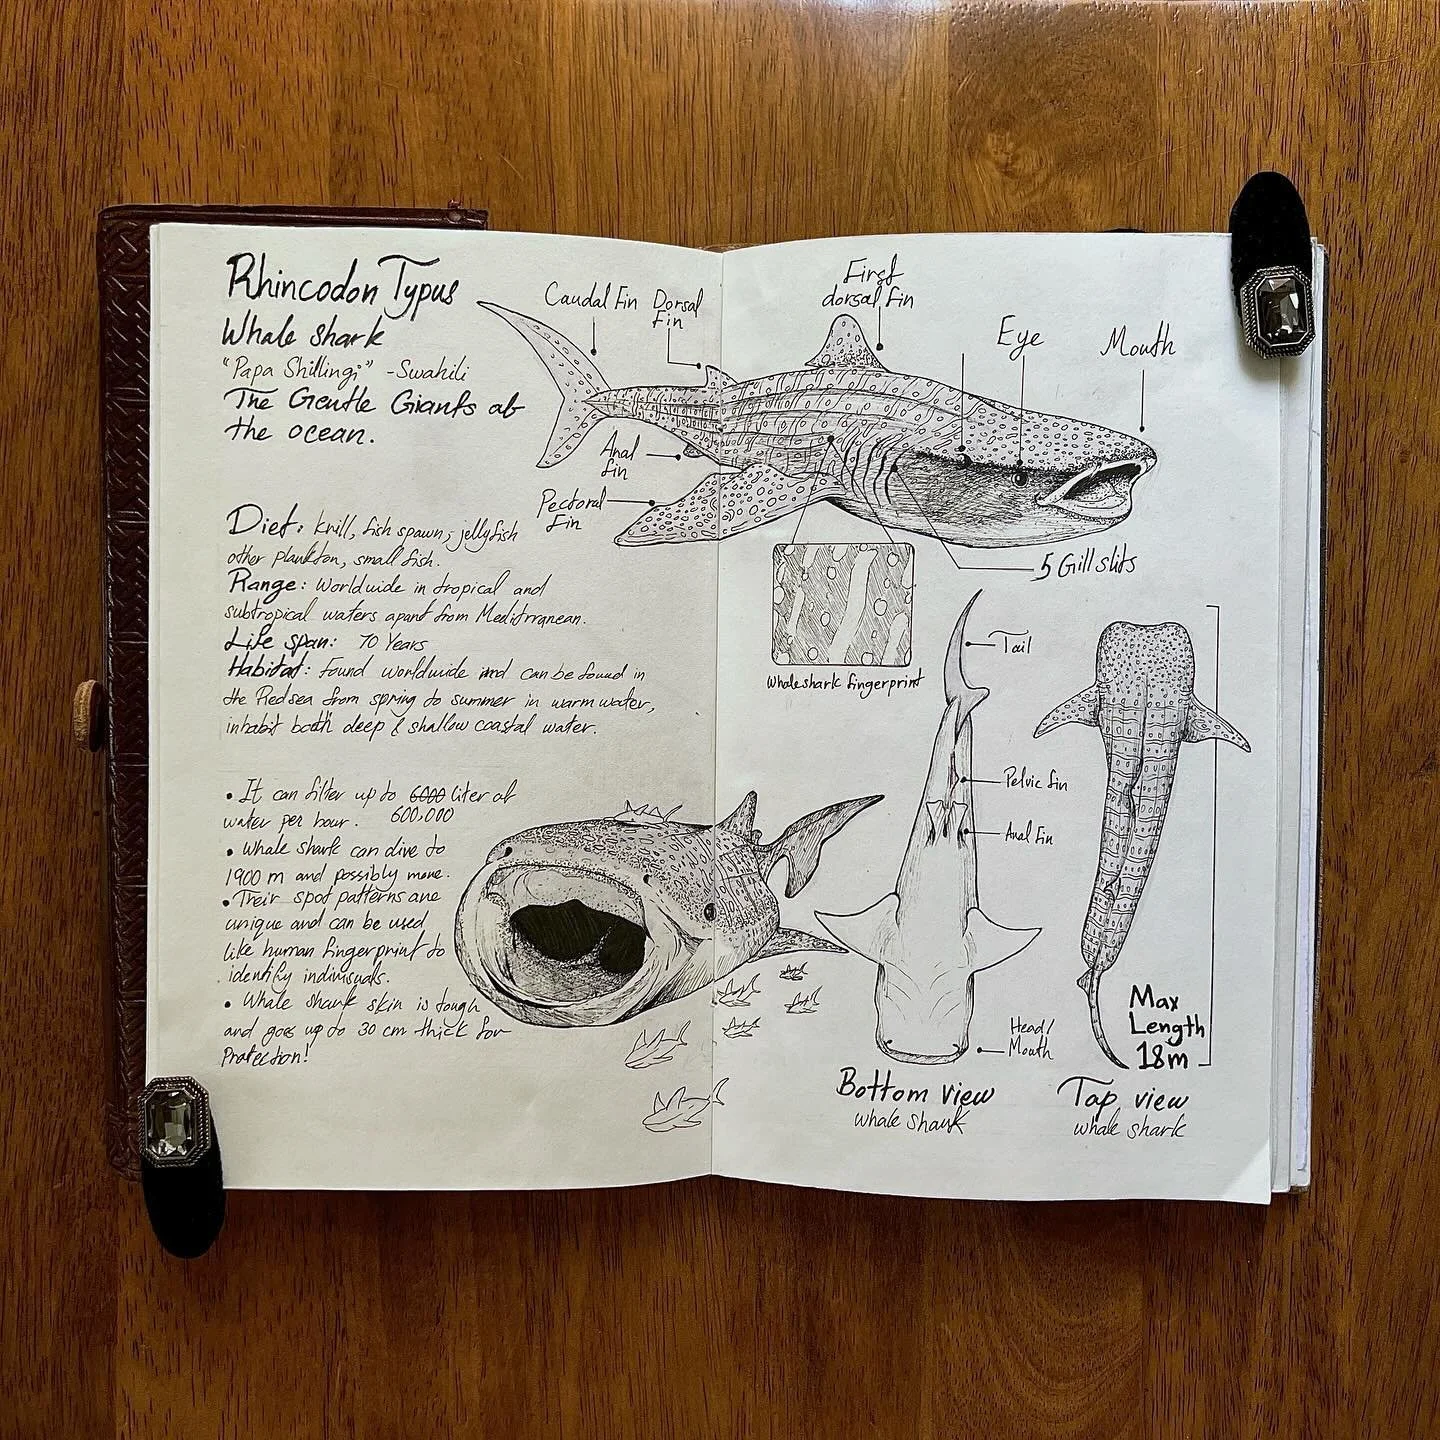 Rhincodon Typus
Whale shark
"Papa Shillingi" -Swahili
The Gentle Giants of
the ocean.
Diet: krill, fish spawn, jellyfish
other plankton, small fish.
Range: Worldwide in tropical and
subtropical waters apart from Meditrranean.
Life span: 70 Years
Habitat: Found worldwide and can be found in
the Red sea from spring to summer in warm water,
inhabit both deep & shallow coastal water.
• It can filter up to 6000 liter of
water per hour. 600,000
• Whale shark can dive to
1900 m and possibly more.
• Their spot patterns are
unique and can be used
like human fingerprint to
identify individuals.
• Whale shark skin is tough
and goes up to 30 cm thick for
Protection!
Caudal fin
Dorsal
fin
First
dorsal fin
Eye
Mouth
Anal
fin
Pectoral
fin
5 Gill slits
Whale shark fingerprint
Tail
Pelvic fin
Anal fin
Head/
Mouth
Bottom view
whale shark
Max
Length
18m
Top view
whale shark